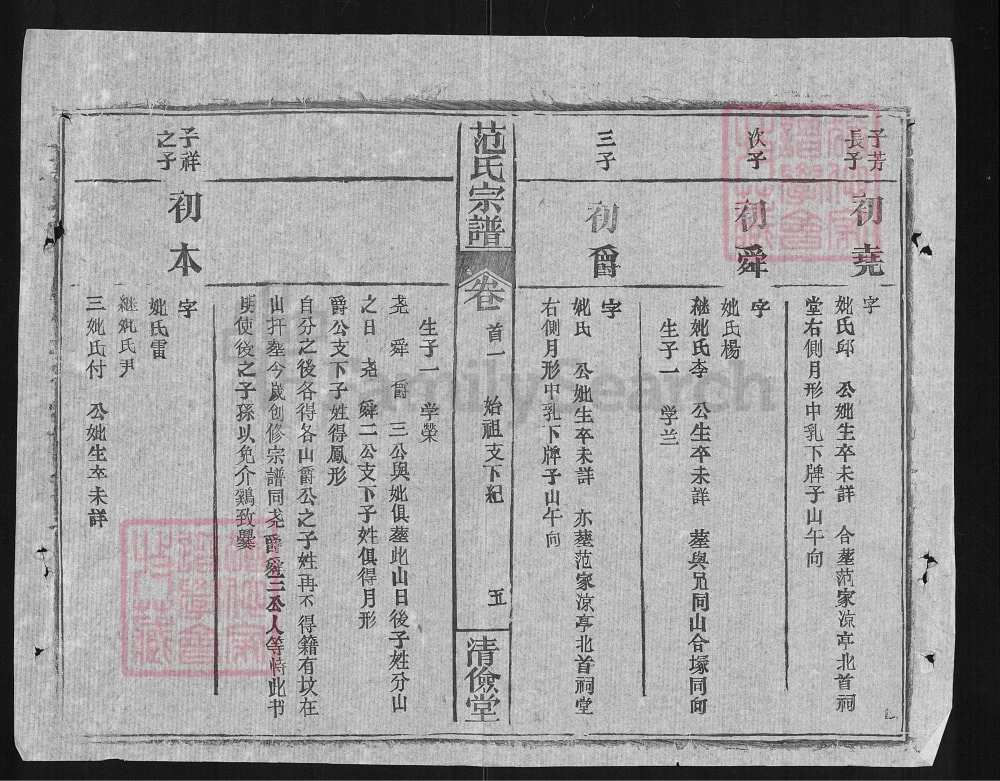 子芳
長子
初堯
字
妣氏邱　公妣生卒未詳　合塟范家凉亭北首祠
堂右側月形中乳下牌子山午向
次子
初舜
字
妣氏楊
継妣氏李　公生卒未詳　塟與兄同山合塚同向
生子一　学兰
三子
初爵
字
妣氏　公妣生卒未詳　亦塟范家凉亭北首祠堂
右側月形中乳下牌子山午向
范氏宗譜
卷
首一　始祖支下紀
五
清儉堂
生子一　学榮
尧　舜　爵　三公與妣俱塟此山日後子姓分山
之日　尧　舜二公支下子姓俱得月形
爵公支下子姓得鳳形
自分之後各得各山爵公之子姓再不得籍有坟在
山扦塟今歲创修宗譜同尧爵舜三公人等恃此书
明使後之子孫以免介鷄致釁
子祥
之子
初本
字
妣氏雷
継妣氏尹
三妣氏付　公妣生卒未詳
FamilySearch